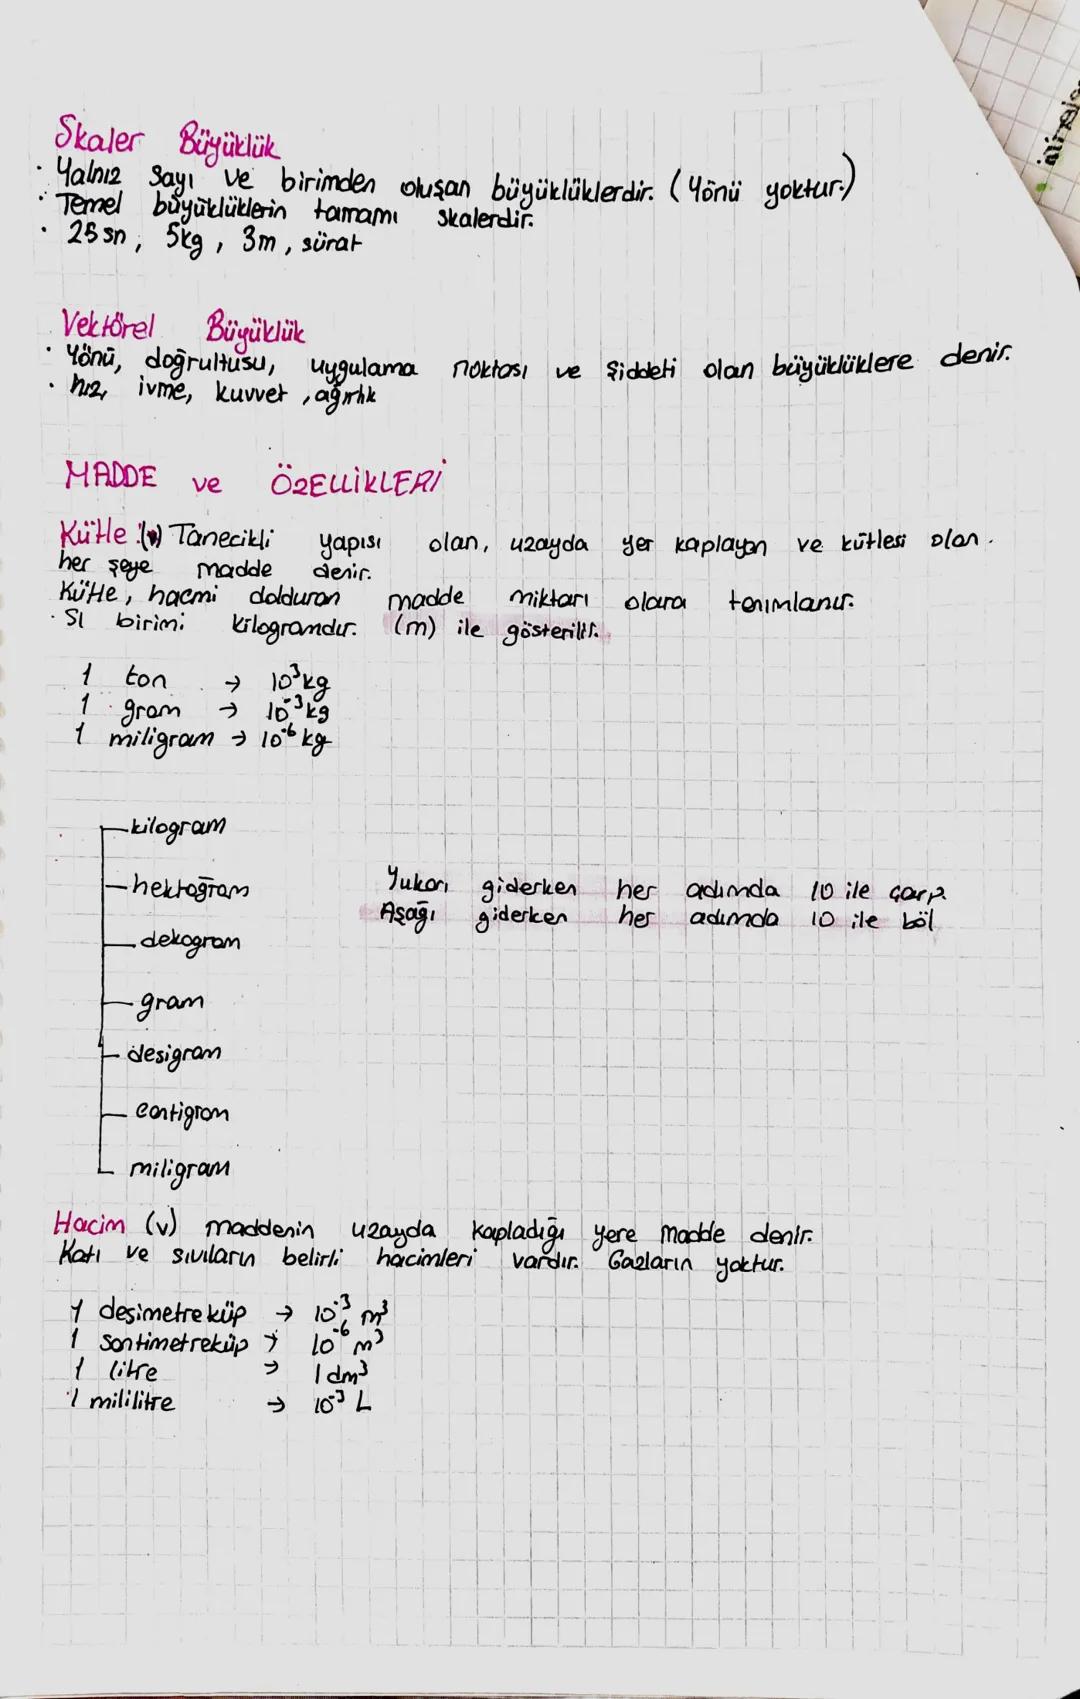 Skaler Büyüklük
· Yalnız sayı ve birimden oluşan büyüklüklerdir. (Yönü yoktur.)
· Temel büyüklüklerin tamamı skalerdir.
· 25 sn, 5kg, 3m, sürat
Vektörel Büyüklük
· Yönü, doğrultusu, uygulama noktası ve şiddeti olan büyüklüklere denir.
· hız, ivme, kuvvet, ağırlık
MADDE ve ÖZELLİKLERİ
Kütle : Tanecikli yapısı olan, uzayda yer kaplayan ve kütlesi olan
her şeye madde denir.
Kütle, hacmi dolduran madde miktarı olara tanımlanır.
· SI birimi kilogramdır. (m) ile gösterilir.
1 ton → 10³ kg
1 gram → 10⁻³ kg
1 miligram → 10⁻⁶ kg
kilogram
hektoğram
Yukarı giderken her adımda 10 ile çarp.
Aşağı giderken her adımda 10 ile böl
dekogram
gram
desigram
centigram
miligram
Hacim (v) maddenin uzayda kapladığı yere madde denir.
Katı ve sıvıların belirli hacimleri vardır. Gazların yoktur.
1 desimetreküp → 10⁻³ m³
1 santimetreküp → 10⁻⁶ m³
1 litre → 1 dm³
1 mililitre → 10⁻³ L